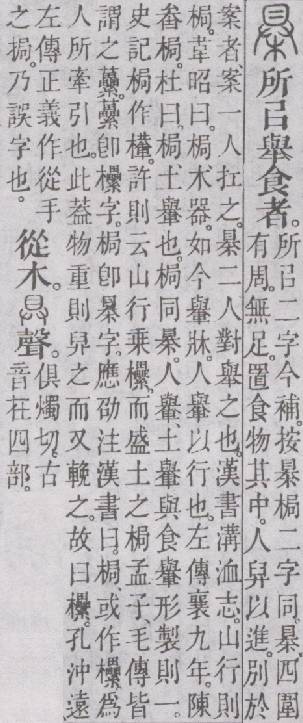 所㠯擧食者。
所㠯二字今補。按梮二字同。四圍
有周。無足。置食物其中。人舁以進。別於
案者。案一人扛之。二人對舉之也。漢書溝洫志。山行則
梮。韋昭曰。梮木器。如今轝牀。人轝以行也。左傳襄九年。陳
畚梮。杜曰。梮、土轝也。梮同。人轝、土轝與食轝形製則一。
史記梮作檋。許則云山行乘欙。而盛土之梮。孟子、毛傳皆
謂之虆。虆卽欙字。梮卽字。應劭注漢書曰。梮或作欙。爲
人所牽引也。此葢物重則舁之而又輓之。故曰欙。孔沖遠
左傳正義作從手
之挶。乃誤字也。
從木。聲。
俱燭切。古
音在四部。